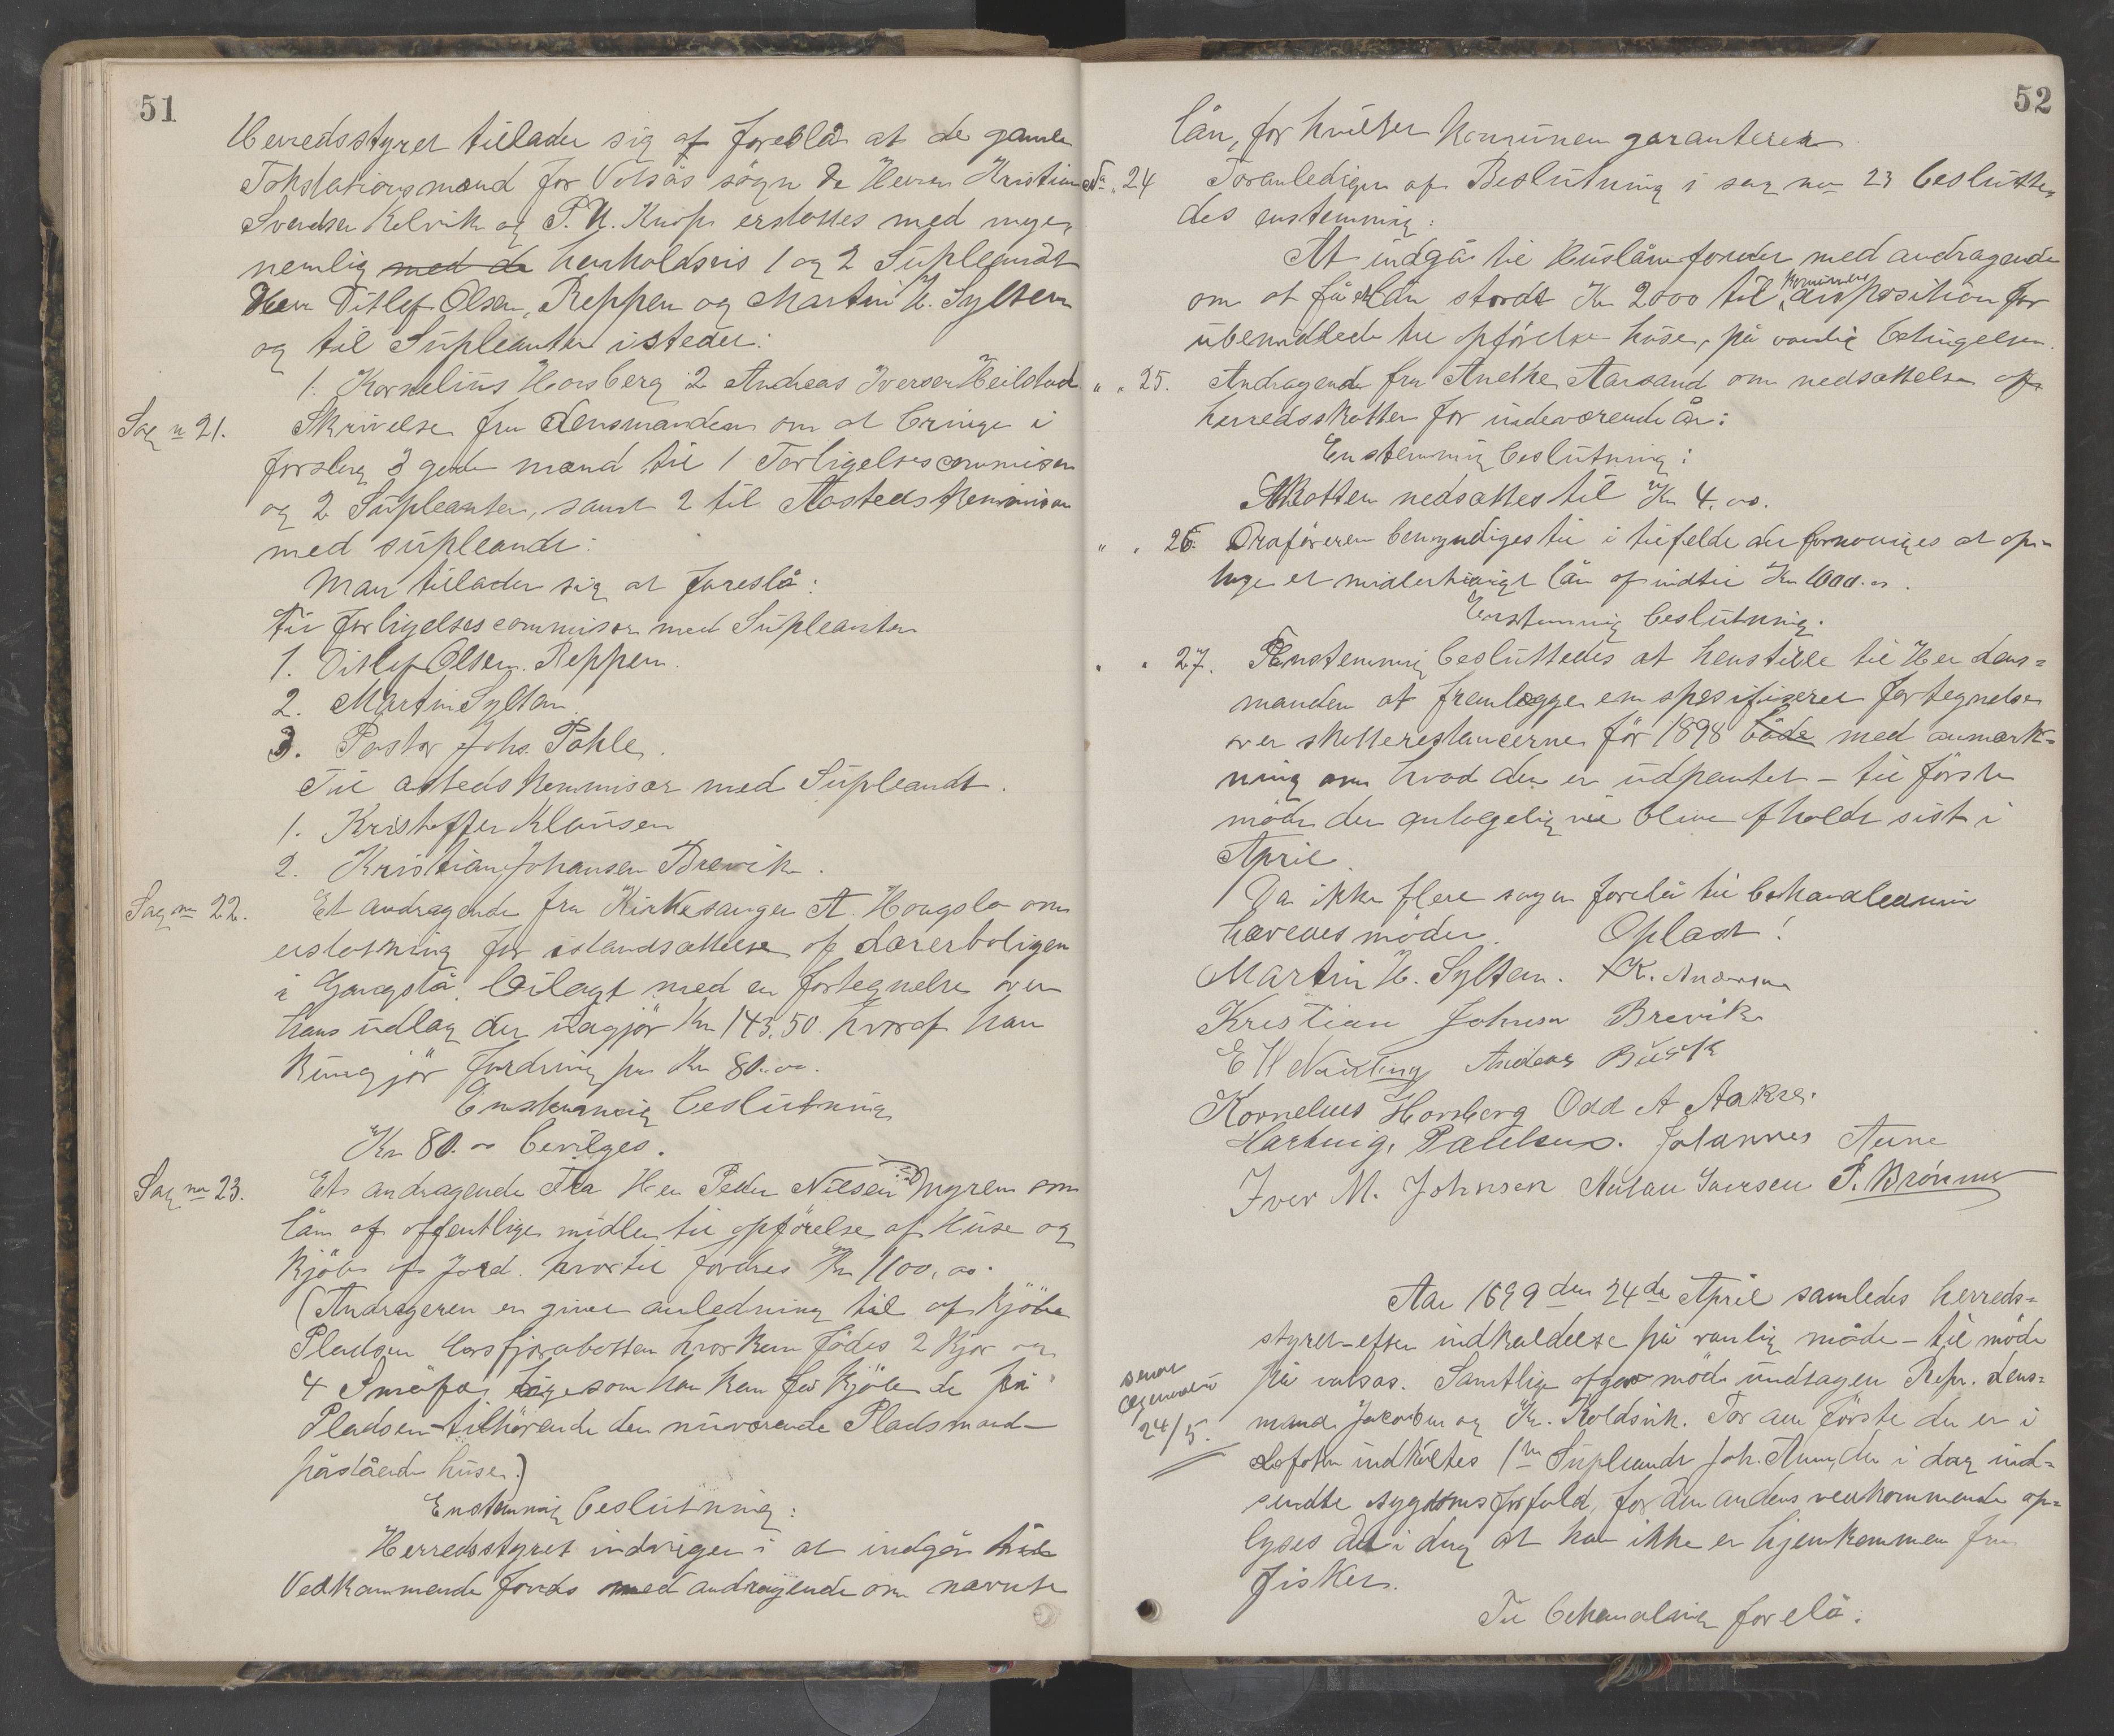 51
Herredsstyret tillader sig at foreslå at de gamle
Takstationsmænd for Volsås sogn de Herrer Kristian
Svendsen Kelvik og P. U. Knoph erstattes med nye,
nemlig med de henholdsvis 1 og 2 Supleandt
Herr Ditlef Olsen, Reppen og Martin H. Sylten
og til Supleanter isteden:
1. Kornelius Horsberg 2 Andreas Iversen Heilstad
Sag n 21. Skrivelse fra Lensmanden om at bringe i
forslag 3 gode mænd til 1 Forligelsescommisær
og 2 Supleanter, samt 2 til Aasteds Kommisær
med supleandt:
Man tillader sig at foreslå:
Til forligelsescommisær med Supleanter
1. Ditlef Olsen Reppen.
2. Martin Sylten
3. Pastor Johs. Pahle.
Til åsteds kommisær med Supleandt.
1. Kristoffer Klausen
2. Kristian Johansen Brevik.
Sag no 22. Et andragende fra Kirkesanger A. Hougslo om
erstatning for istandsættelse af Lærerboligen
i Gangstå, bilagt med en fortegnelse over
hans udlag der udgjør Kr 143,50 hvoraf han
kun gjør fordring på Kr 80.00.
Enstemmig beslutning
Kr 80.00 bevilges.
Sag no 23. Et andragende fra Her Peder Nilsen Myrem om
lån af offentlige midler til opførelse af Huse og
kjøb af Jord. hvortil fordres Kr 1100,00.
(Andrageren er given anledning til at kjøbe
Pladsen hvor kan fødes 2 Kjør og
4 Småfæ, ligesom han kan få kjøbe de på
Pladsen tilhørende den nuværende Pladsmand
påstående huse.)
Enstemmig beslutning:
Herredsstyret indviger i at indgå til
Vedkommende fonds med andragende om nævnte
52
lån, for hvilket Komunen garanterer
No. 24 Foranlediget af Beslutning i sag no 23 beslutte-
des enstemmig:
At indgå til Huslånefondet med andragende
om at få et lån stordt Kr 2000 til Komunens disposition for
ubemidlede til opførelse huse, på vanlig betingelser.
" " 25. Andragende fra Anethe Aarsand om nedsættelse af
herredsskatten for indeværende år:
Enstemmig beslutning:
Skatten nedsættes til Kr 4,00.
" " 26. Ordføreren bemyndiges til i tilfelde der fornødiges at op-
tage et midlertidigt lån af indtil Kr 1000.00.
Enstemmig beslutning.
" " 27. Enstemmig besluttedes at henstille til Her Lens=
manden at fremlægge en spesifiseret fortegnelse
over skatterestancerne for 1898 både med anmærk-
ning om hvad der er udpantet – til første
møde der antagelig vil blive afholdt sist i
April.
Da ikke flere sager forelå til behandling
hævedes mødet. Oplæst!
Martin H. Sylten. K. Andersen
Kristian Johnsen Brevik
E H Andreas Busk
Kornelius Horsberg Odd A Aakre.
Hartvig. Paulsen. Johannes Aune
Iver M. Johnsen Antan Iversen P. Brønner
Aar 1899 den 24de April samledes herreds=
styret efter indkaldelse på vanlig måde – til møde
på valsås. Samtlige møde undtagen Repr. Lens=
mand Jakobsen og Kr. Koldsvik. For den første der er i
Lofoten indkaltes 1ste Supleandt Joh. Aune, der i dag ind=
sendte sygdomsforfald, for den andens vedkommende op=
lyses det i dag at han ikke er hjemkommen fra
fisket.
24/5.
Til behandling forelå: